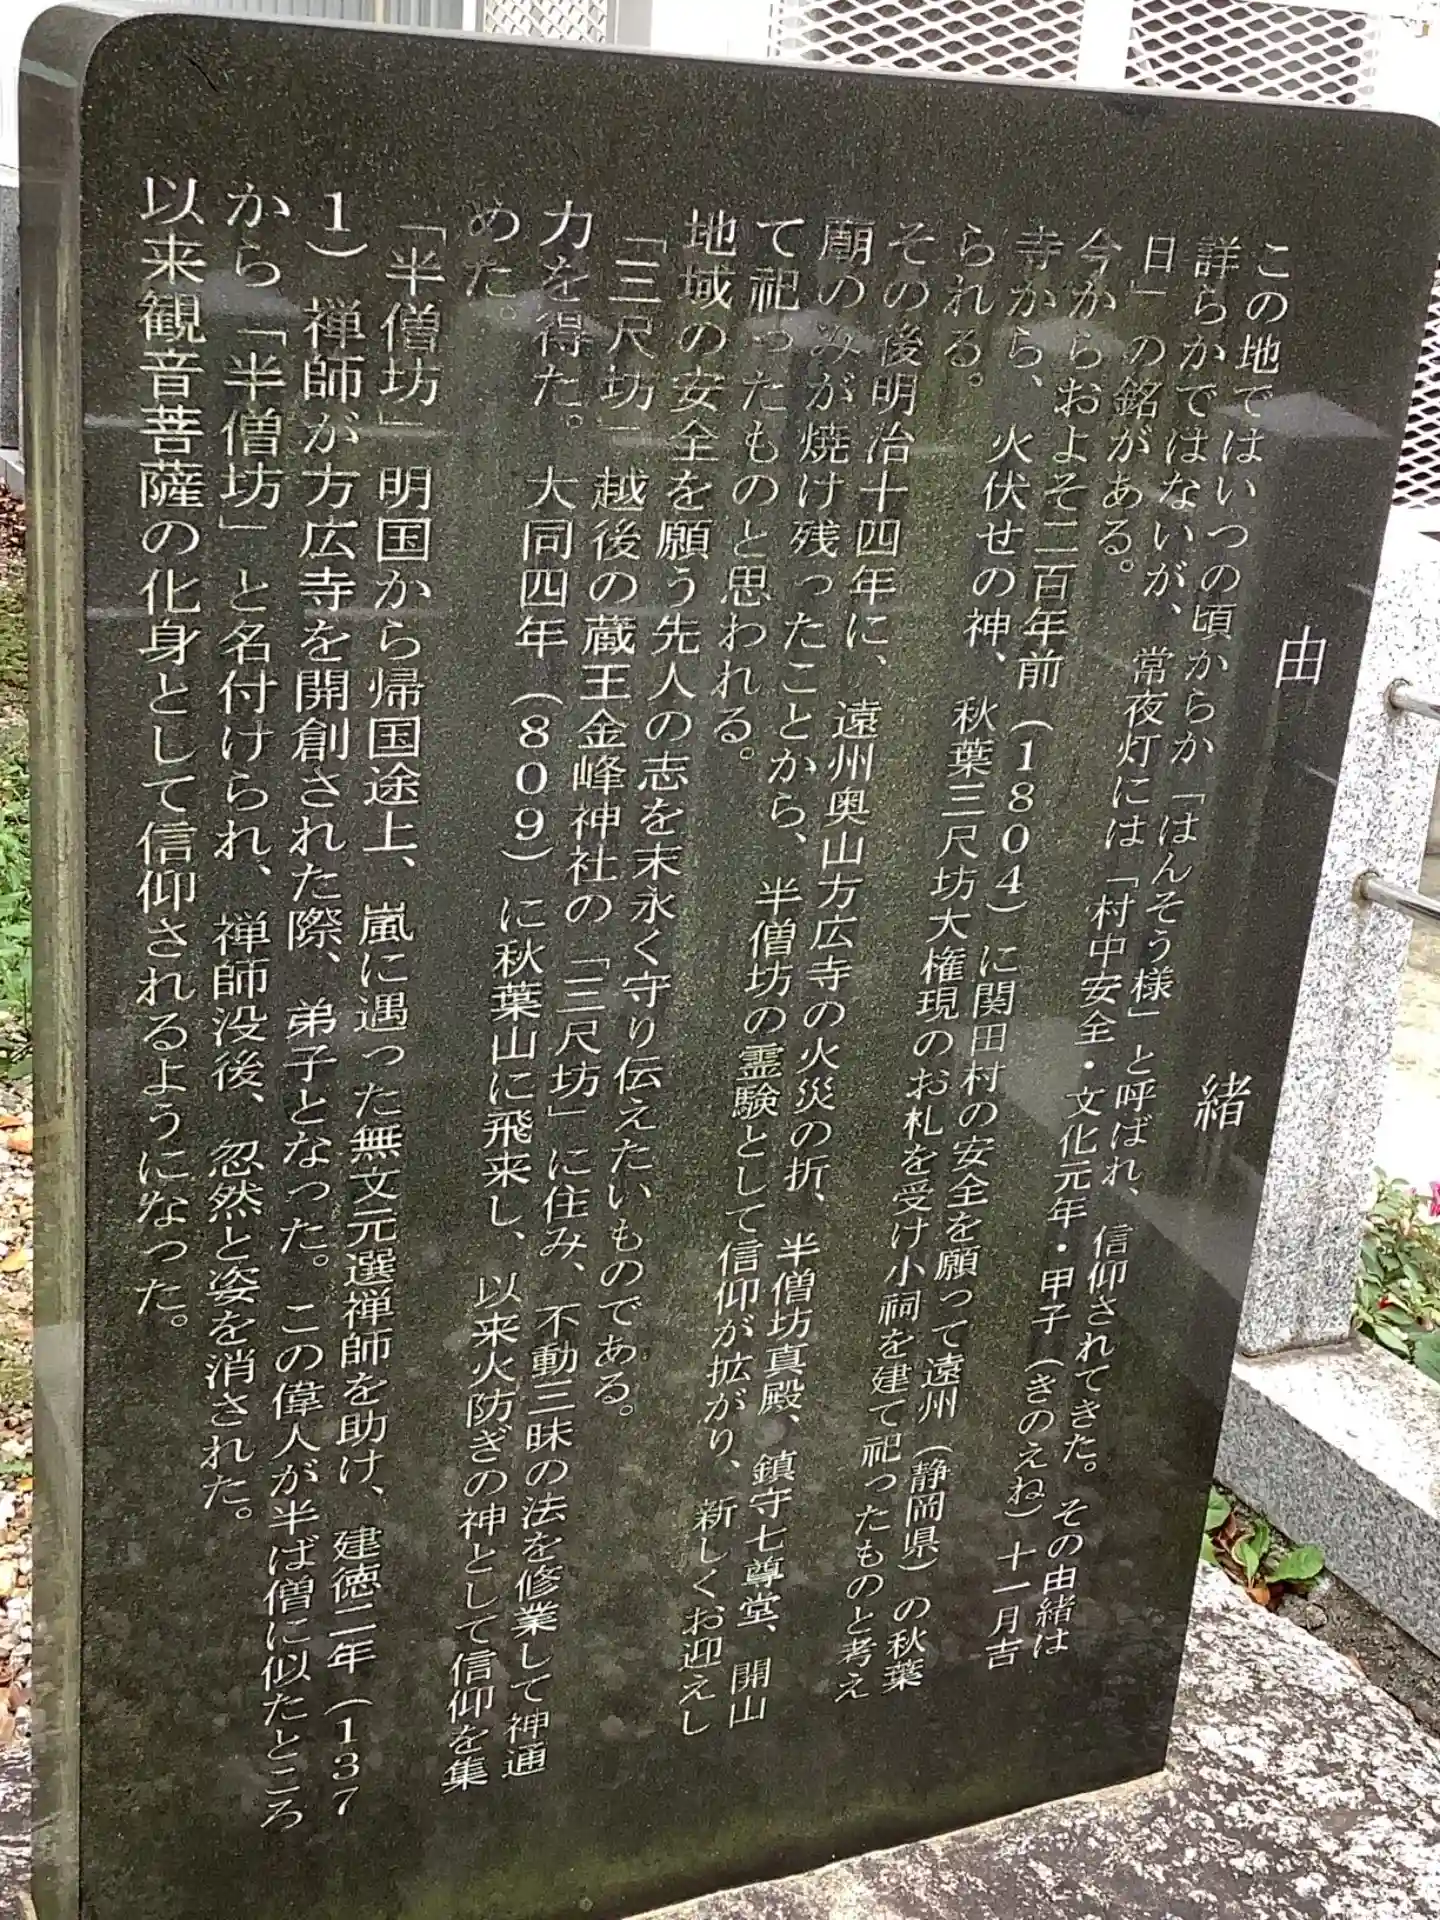 由緒
この地ではいつの頃からか「はんそう様」と呼ばれ、信仰されてきた。その由緒は
詳らかではないが、常夜灯には「村中安全・文化元年・甲子(きのえね)十一月吉
日」の銘がある。
今からおよそ二百年前(1804)に関田村の安全を願って遠州(静岡県)の秋葉
寺から、火伏せの神、秋葉三尺坊大権現のお札を受け小祠を建て祀ったものと考え
られる。
その後明治十四年に、遠州奥山方広寺の火災の折、半僧坊真殿、鎮守七尊堂、開山
廟のみが焼け残ったことから、半僧坊の霊験として信仰が拡がり、新しくお迎えし
て祀ったものと思われる。
地域の安全を願う先人の志を末永く守り伝えたいものである。
「三尺坊」越後の蔵王金峰神社の「三尺坊」に住み、不動三昧の法を修業して神通
力を得た。大同四年(809)に秋葉山に飛来し、以来火防ぎの神として信仰を集
めた。
「半僧坊」明国から帰国途上、嵐に遇った無文元選禅師を助け、建徳二年(137
1)禅師が方広寺を開創された際、弟子となった。この偉人が半ば僧に似たところ
から「半僧坊」と名付けられ、禅師没後、忽然と姿を消された。
以来観音菩薩の化身として信仰されるようになった。